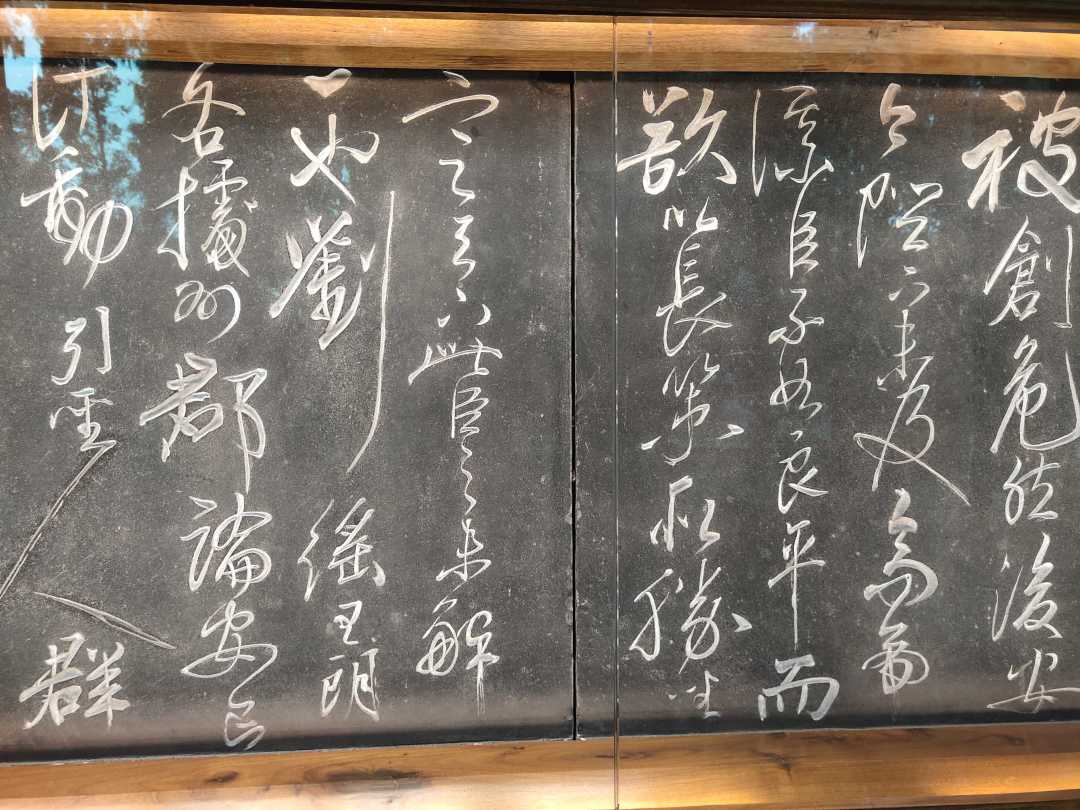 被創危然後安
今陛下未及高帝
謀臣不如良平而
欲以長策取勝坐
定天下此臣之未解
一也劉繇王朗
各據州郡論安言
計動引聖人群